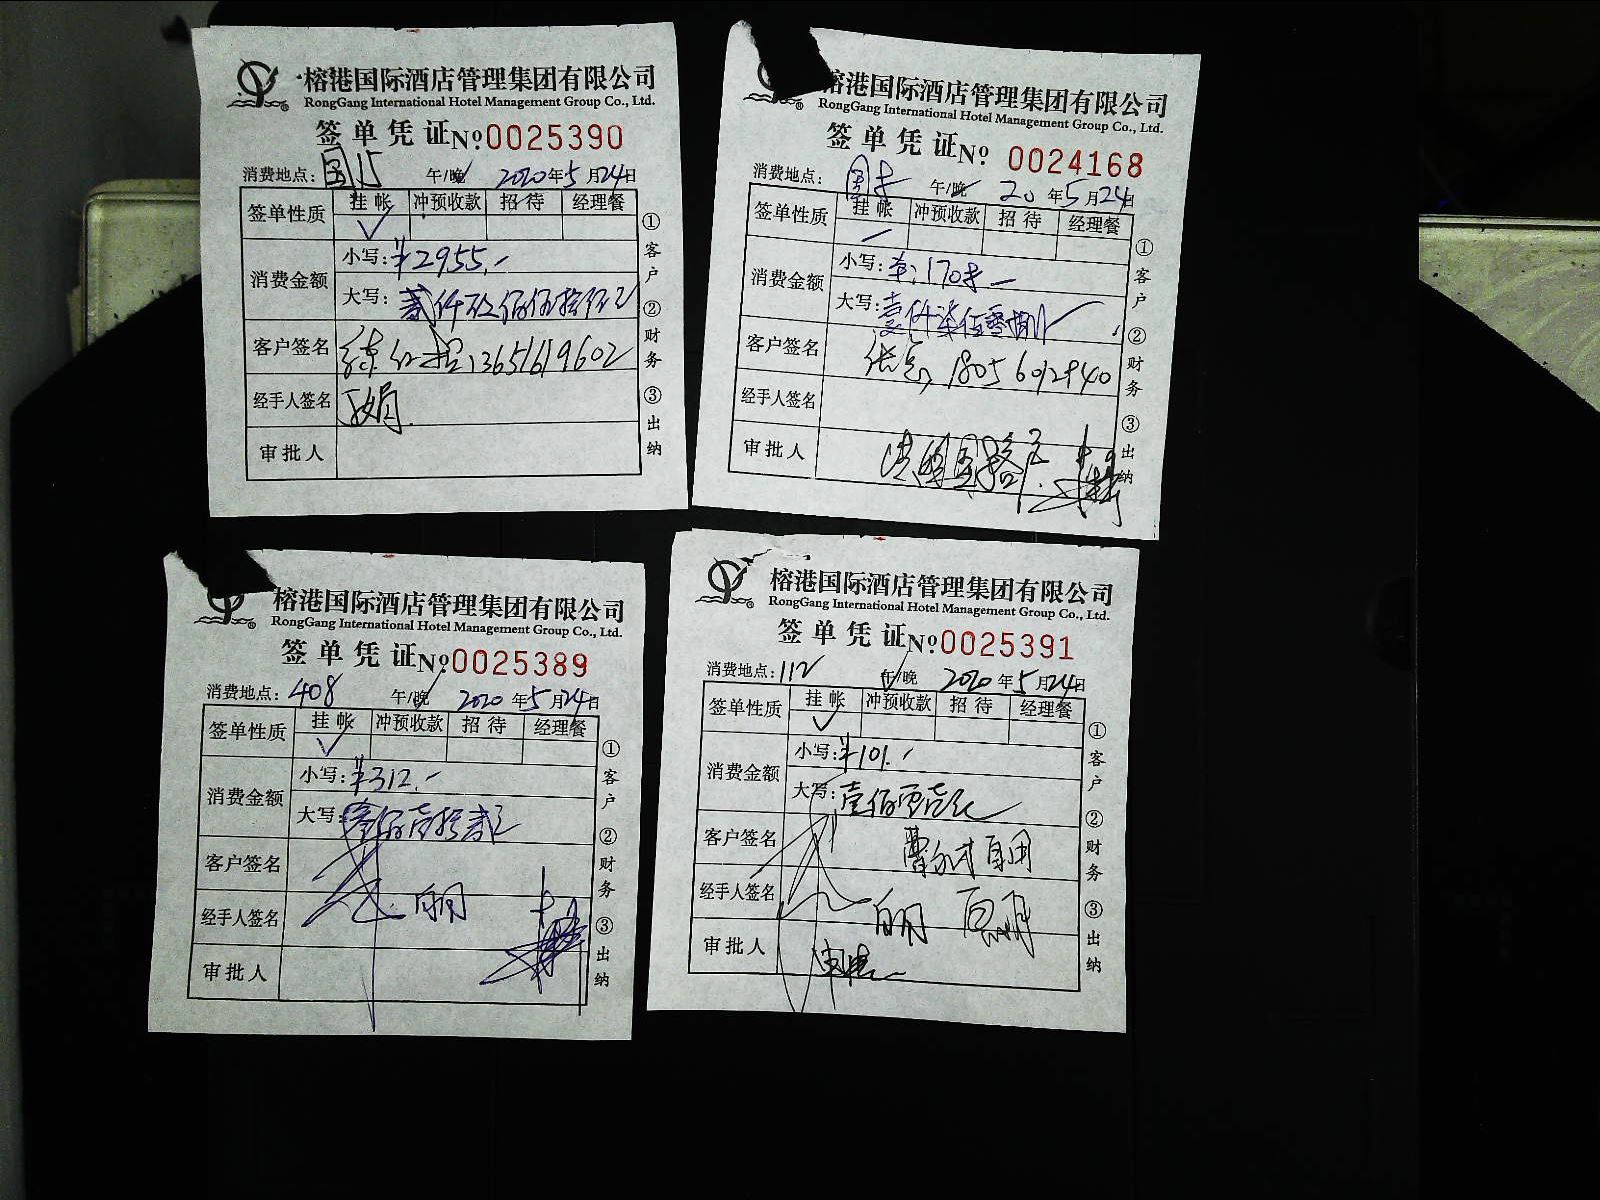 榕港国际酒店管理集团有限公司
RongGang International Hotel Management Group Co., Ltd.
签单凭证 No 0025390
消费地点： 午/晚 2020年5月24日
签单性质 挂帐 冲预收款 招待 经理餐
消费金额
小写：¥2955.-
大写：贰仟玖佰伍拾伍元
客户签名 13651619602
经手人签名
审批人
①客户 ②财务 ③出纳
榕港国际酒店管理集团有限公司
RongGang International Hotel Management Group Co., Ltd.
签单凭证 No 0024168
消费地点： 午/晚 20年5月24日
签单性质 挂帐 冲预收款 招待 经理餐
消费金额
小写：
大写：壹仟柒佰零捌
客户签名 18056012940
经手人签名
审批人
①客户 ②财务 ③出纳
榕港国际酒店管理集团有限公司
RongGang International Hotel Management Group Co., Ltd.
签单凭证 No 0025389
消费地点：408 午/晚 2020年5月24日
签单性质 挂帐 冲预收款 招待 经理餐
消费金额
小写：¥312.-
大写：叁佰壹拾贰元
客户签名
经手人签名
审批人
①客户 ②财务 ③出纳
榕港国际酒店管理集团有限公司
RongGang International Hotel Management Group Co., Ltd.
签单凭证 No 0025391
消费地点：112 午/晚 2020年5月24日
签单性质 挂帐 冲预收款 招待 经理餐
消费金额
小写：¥101.-
大写：壹佰零壹元
客户签名
经手人签名
审批人
①客户 ②财务 ③出纳